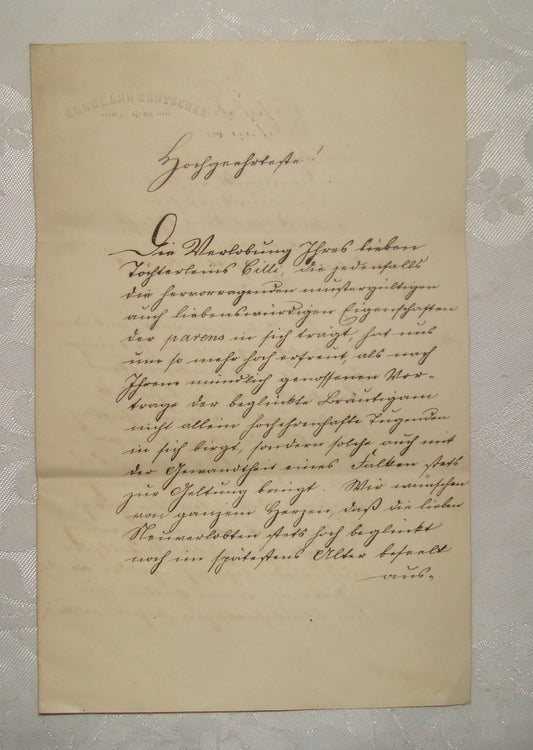 Hochgeehrteste!
Die Verlobung Ihres lieben
Töchterleins Cilli, die jedenfalls
die hervorragenden mustergültigen
auch liebenswürdigen Eigenschaften
der parens in sich trägt, hat uns
um so mehr hoch erfreut, als nach
Ihrem mündlich genossenen Vor-
trage der beglückte Bräutigam
nicht allein hochehrenhafte Tugenden
in sich birgt, sondern solche auch mit
der Gewandtheit eines Falken stets
zur Geltung bringt. Wir wünschen
von ganzem Herzen, daß die lieben
Neuverlobten stets hoch beglückt
noch im spätesten Alter beseelt
aus-